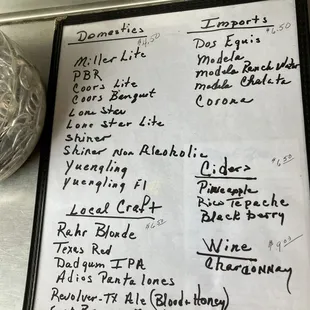 Domestics
$4.50
Miller Lite
PBR
Coors Lite
Coors Banquet
Lone Star
Lone Star Lite
Shiner
Shiner Non Alcoholic
Yuengling
Yuengling Fl
Local Craft
$6.50
Rahr Blonde
Texas Red
Dadgum IPA
Adios Pantalones
Revolver-TX Ale (Blood & Honey)
Imports
$6.50
Dos Equis
Modela
modela Ranch Water
modela Chelata
Corona
Ciders
$6.50
Pineapple
Rico Tepache
Blackberry
Wine
Chardonnay